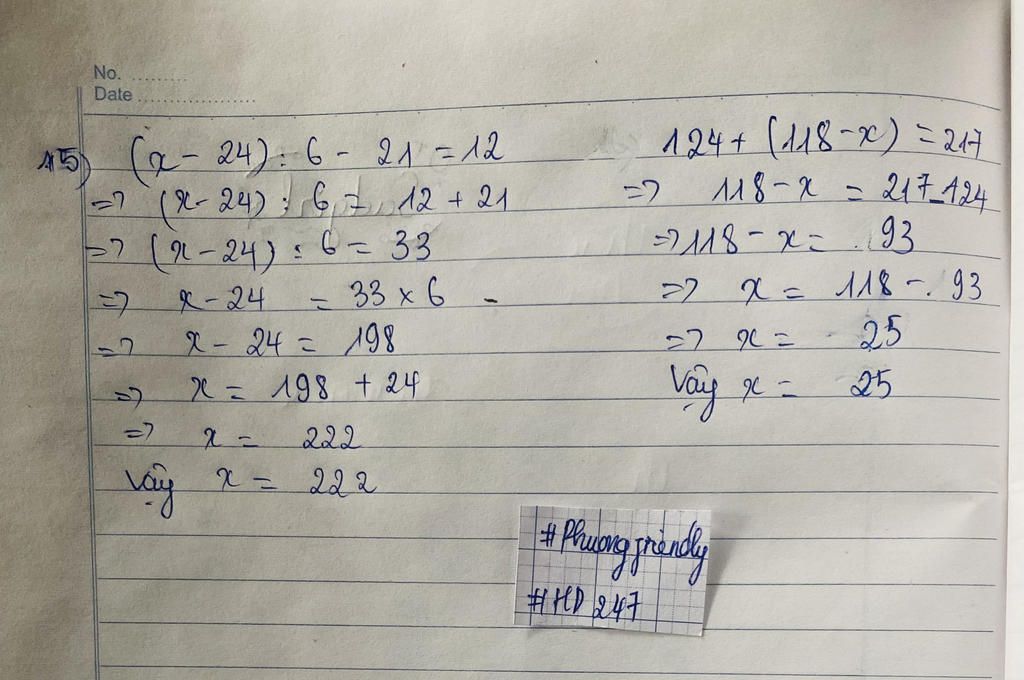 No. .........
Date ...................
15) (x - 24) : 6 - 21 = 12
=> (x - 24) : 6 = 12 + 21
=> (x - 24) : 6 = 33
=> x - 24 = 33 × 6
=> x - 24 = 198
=> x = 198 + 24
=> x = 222
Vậy x = 222
124 + (118 - x) = 217
=> 118 - x = 217 - 124
=> 118 - x = 93
=> x = 118 - 93
=> x = 25
Vậy x = 25
#Phuongfriendly
#HD 247